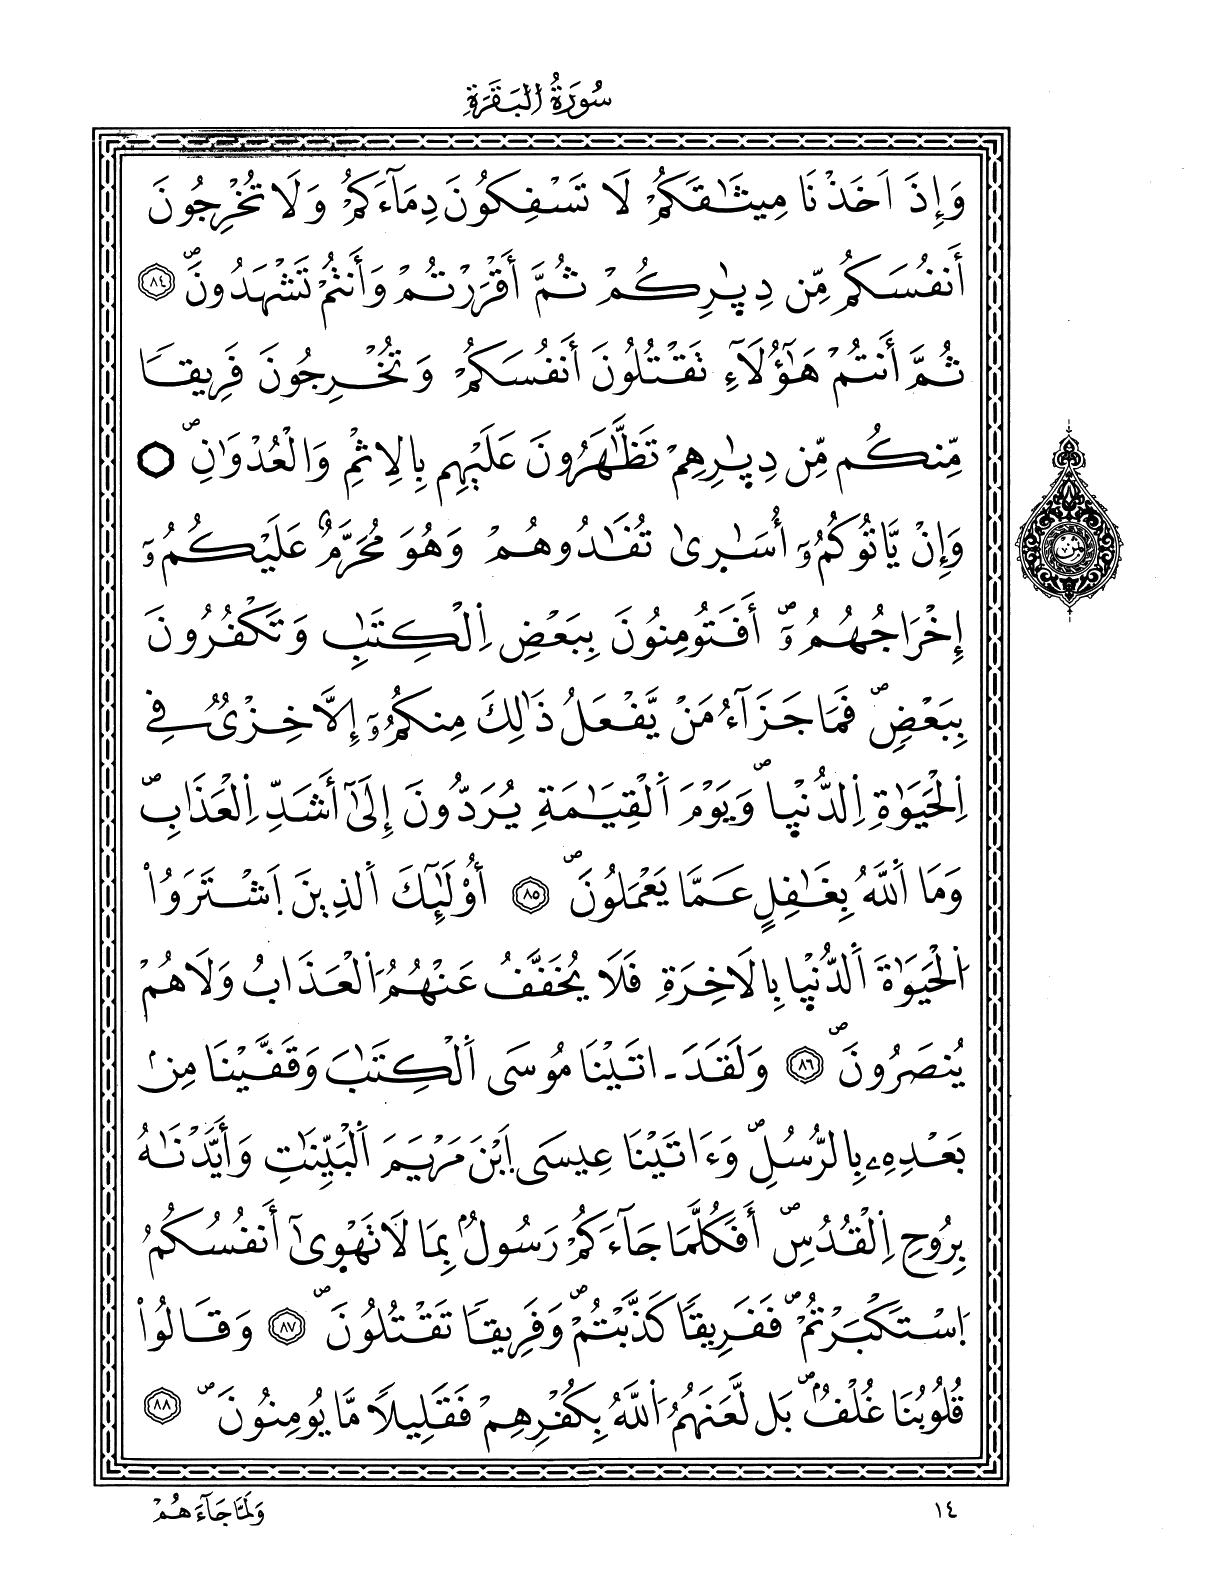 سُورَةُ الْبَقَرَةِ
وَإِذَ اَخَذْنَا مِيثَٰقَكُمْ لَا تَسْفِكُونَ دِمَآءَكُمْ وَلَا تُخْرِجُونَ
أَنفُسَكُم مِّن دِيٰ۪رِكُمْ ثُمَّ أَقْرَرْتُمْ وَأَنتُمْ تَشْهَدُونَۖ ٨٤
ثُمَّ أَنتُمْ هَٰٓؤُلَآءِ تَقْتُلُونَ أَنفُسَكُمْ وَتُخْرِجُونَ فَرِيقاٗ
مِّنكُم مِّن دِيٰ۪رِهِمْ تَظَّٰهَرُونَ عَلَيْهِم بِالِاثْمِ وَالْعُدْوَٰنِۖ
وَإِنْ يَّاتُوكُمُۥٓ أُسَٰر۪يٰ تُفَٰدُوهُمْ وَهُوَ مُحَرَّمٌ عَلَيْكُمُۥٓ
إِخْرَاجُهُمُۥٓۖ أَفَتُومِنُونَ بِبَعْضِ اِ۬لْكِتَٰبِ وَتَكْفُرُونَ
بِبَعْضٖۖ فَمَا جَزَآءُ مَنْ يَّفْعَلُ ذَٰلِكَ مِنكُمُۥٓ إِلَّا خِزْيٞ فِے
اِ۬لْحَيَوٰةِ اِ۬لدُّنْي۪اۖ وَيَوْمَ اَ۬لْقِيَٰمَةِ يُرَدُّونَ إِلَيٰٓ أَشَدِّ اِ۬لْعَذَابِۖ
وَمَا اَ۬للَّهُ بِغَٰفِلٍ عَمَّا يَعْمَلُونَۖ ٨٥ أُوْلَٰٓئِكَ اَ۬لذِينَ اَ۪شْتَرَوُاْ
اُ۬لْحَيَوٰةَ اَ۬لدُّنْي۪ا بِالَاخِرَةِ فَلَا يُخَفَّفُ عَنْهُمُ اُ۬لْعَذَابُ وَلَا هُمْ
يُنصَرُونَۖ ٨٦ وَلَقَدَ ـ اتَيْنَا مُوسَي اَ۬لْكِتَٰبَ وَقَفَّيْنَا مِنۢ
بَعْدِهِۦ بِالرُّسُلِۖ وَءَاتَيْنَا عِيسَي اَ۪بْنَ مَرْيَمَ اَ۬لْبَيِّنَٰتِ وَأَيَّدْنَٰهُ
بِرُوحِ اِ۬لْقُدُسِۖ أَفَكُلَّمَا جَآءَكُمْ رَسُولٌۢ بِمَا لَا تَهْو۪يٰٓ أَنفُسُكُمُ
اُ۪سْتَكْبَرْتُمْۖ فَفَرِيقاٗ كَذَّبْتُمْۖ وَفَرِيقاٗ تَقْتُلُونَۖ ٨٧ وَقَالُواْ
قُلُوبُنَا غُلْفُۢۖ بَل لَّعَنَهُمُ اُ۬للَّهُ بِكُفْرِهِمْ فَقَلِيلاٗ مَّا يُومِنُونَۖ ٨٨
١٤
وَلَمَّا جَآءَهُمْ